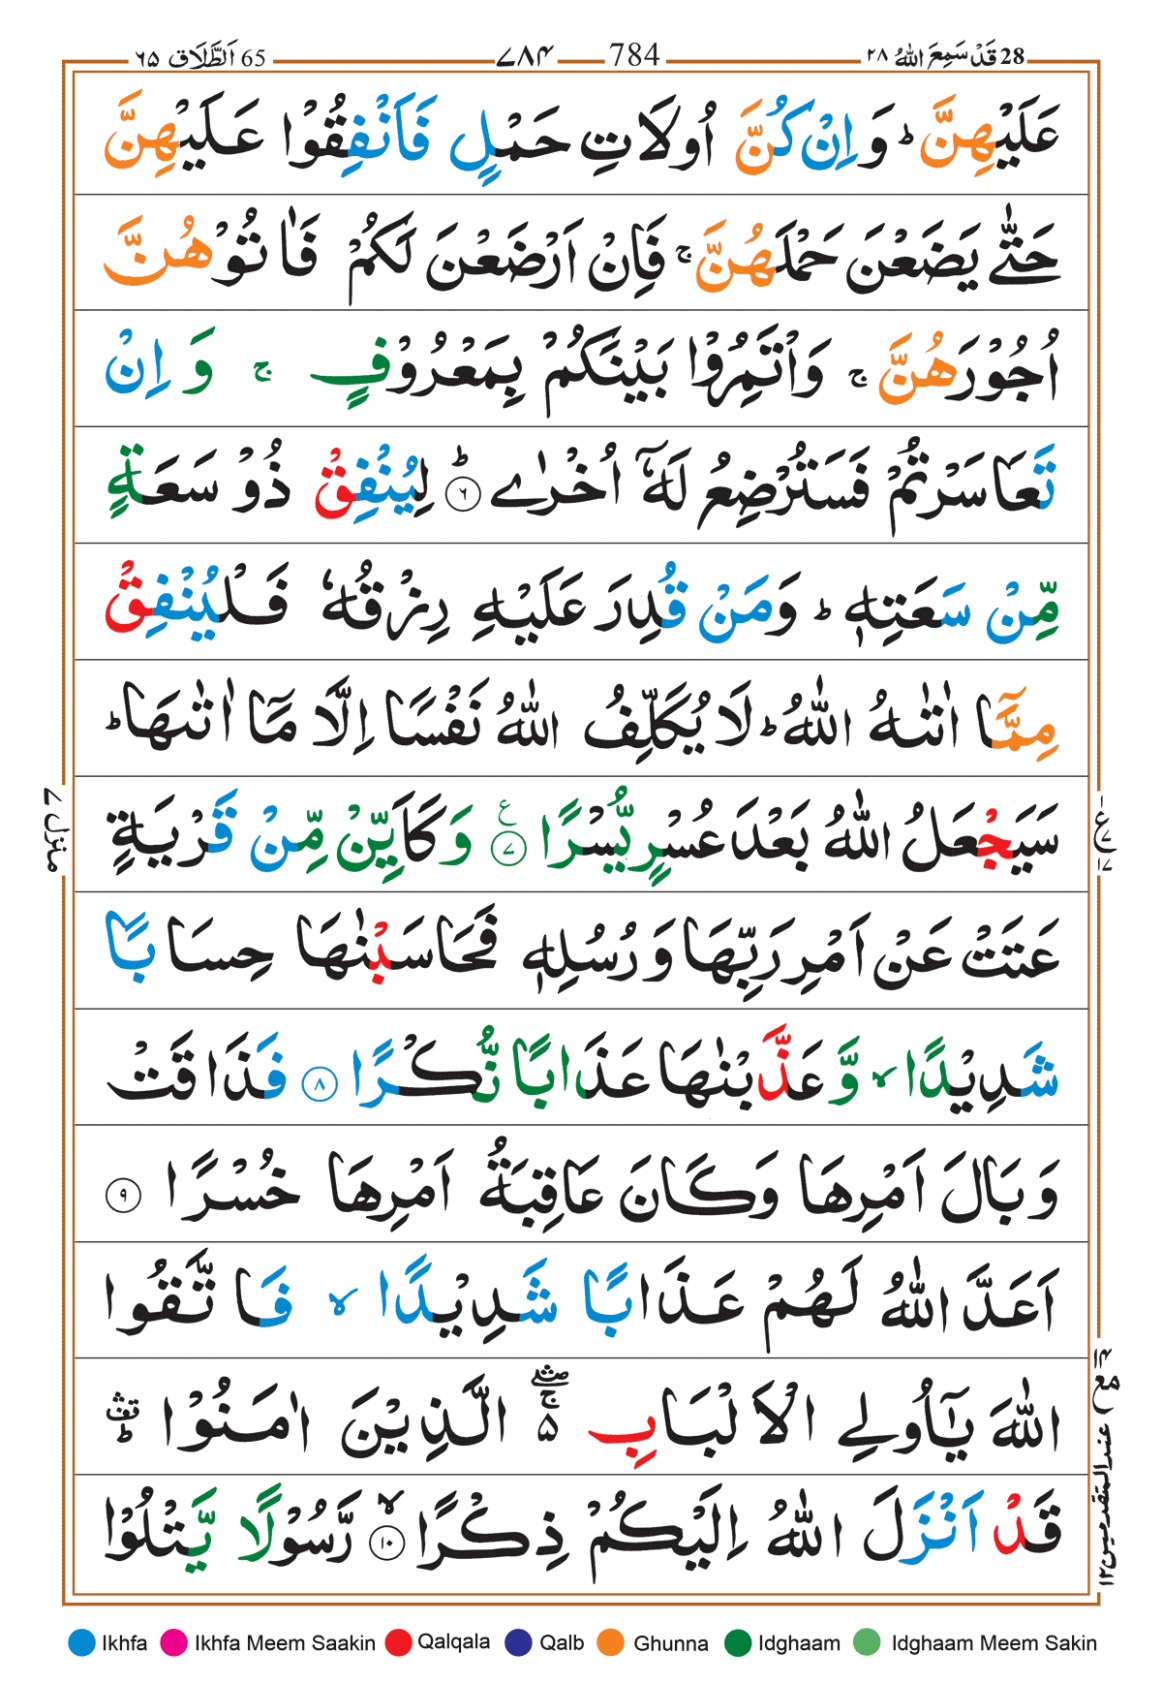 28 قَدْ سَمِعَ اللّٰهُ ٢٨ 784 ٧٨۴ 65 اَلطَّلَاق ٦۵
عَلَيْهِنَّ ؕ وَ اِنْ كُنَّ اُولَاتِ حَمْلٍ فَاَنْفِقُوْا عَلَيْهِنَّ
حَتّٰى يَضَعْنَ حَمْلَهُنَّ ۚ فَاِنْ اَرْضَعْنَ لَكُمْ فَاٰتُوْهُنَّ
اُجُوْرَهُنَّ ۚ وَاْتَمِرُوْا بَيْنَكُمْ بِمَعْرُوْفٍ ۚ وَ اِنْ
تَعَاسَرْتُمْ فَسَتُرْضِعُ لَهٗۤ اُخْرٰى ؕ ٦ لِيُنْفِقْ ذُوْ سَعَةٍ
مِّنْ سَعَتِهٖ ؕ وَمَنْ قُدِرَ عَلَيْهِ رِزْقُهٗ فَلْيُنْفِقْ
مِمَّاۤ اٰتٰىهُ اللّٰهُ ؕ لَا يُكَلِّفُ اللّٰهُ نَفْسًا اِلَّا مَاۤ اٰتٰىهَا ؕ
سَيَجْعَلُ اللّٰهُ بَعْدَ عُسْرٍ يُّسْرًا ع ٧ وَكَاَيِّنْ مِّنْ قَرْيَةٍ
عَتَتْ عَنْ اَمْرِ رَبِّهَا وَ رُسُلِهٖ فَحَاسَبْنٰهَا حِسَابًا
شَدِيْدًا ۙ وَّ عَذَّبْنٰهَا عَذَابًا نُّكْرًا ٨ فَذَاقَتْ
وَبَالَ اَمْرِهَا وَكَانَ عَاقِبَةُ اَمْرِهَا خُسْرًا ٩
اَعَدَّ اللّٰهُ لَهُمْ عَذَابًا شَدِيْدًا ۙ فَاتَّقُوا
اللّٰهَ يٰۤاُولِى الْاَلْبَابِ ۛۚ ۵ الَّذِيْنَ اٰمَنُوْا ؕ
قَدْ اَنْزَلَ اللّٰهُ اِلَيْكُمْ ذِكْرًا ۙ ١٠ رَّسُوْلًا يَّتْلُوْا
منزل ٧
Ikhfa Ikhfa Meem Saakin Qalqala Qalb Ghunna Idghaam Idghaam Meem Sakin